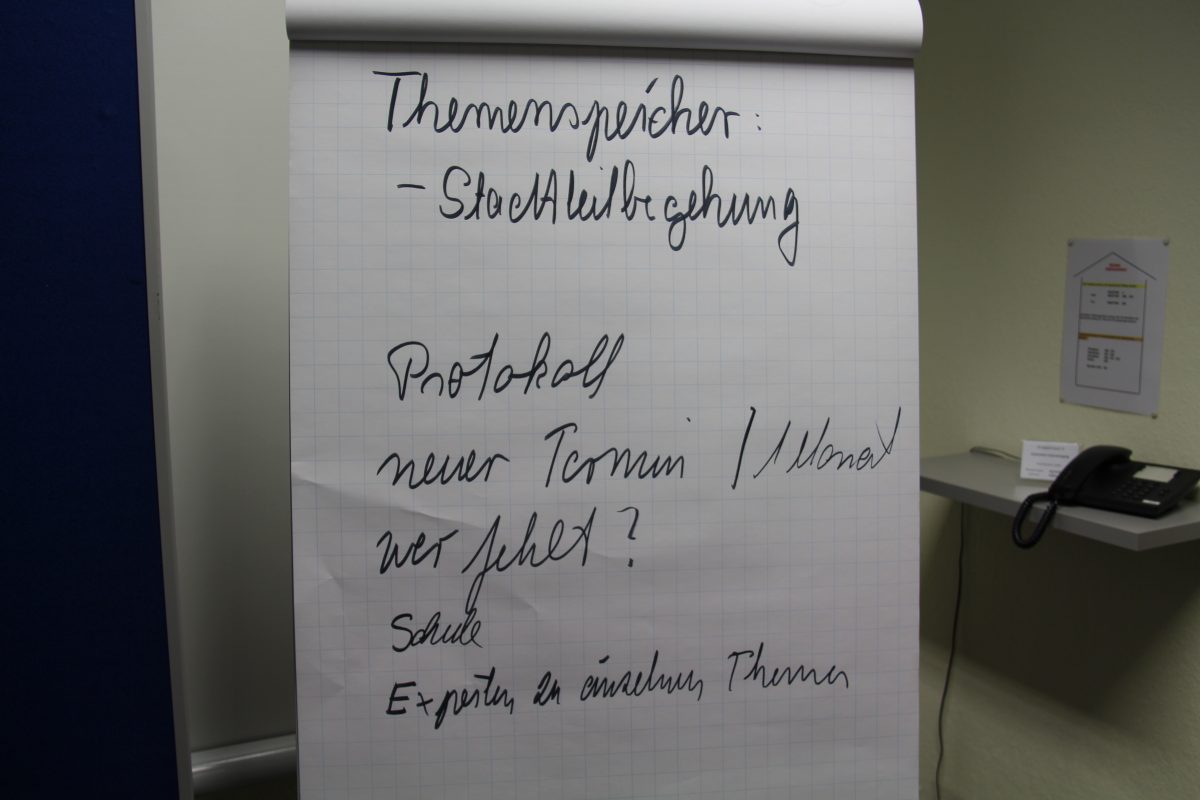 Themenspeicher:
- Stadtteilbegehung
Protokoll
neuer Termin / 1 Monat
wer fehlt?
Schule
Experten zu einzelnen Themen